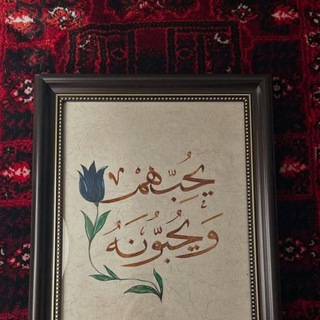 يُحِبُّهُمْ
وَيُحِبُّونَهُ